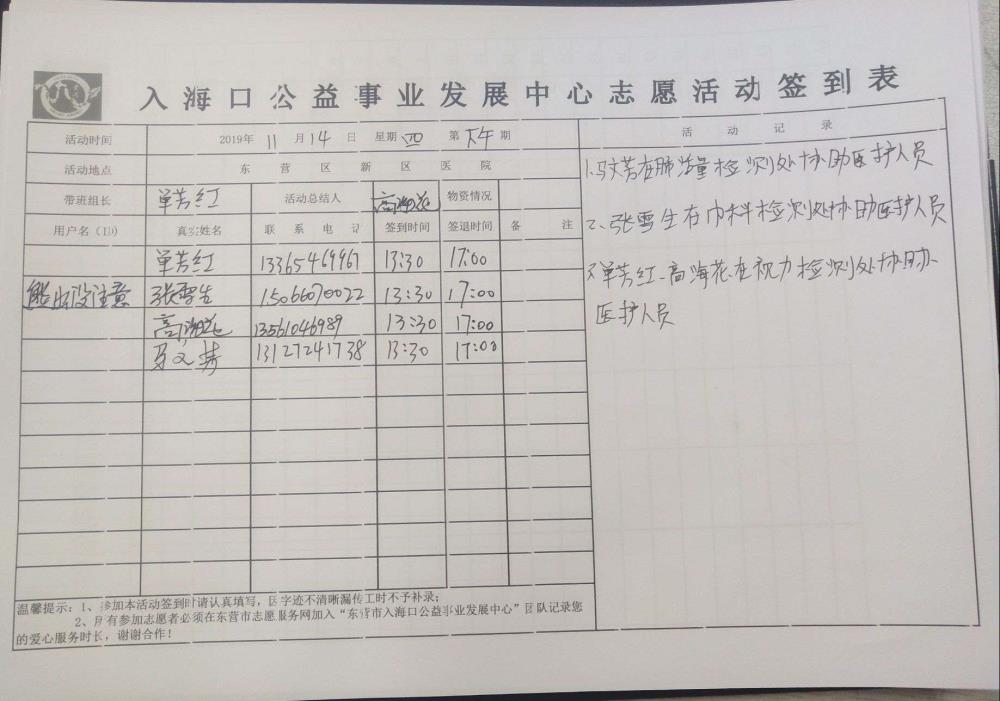 入海口公益事业发展中心志愿活动签到表
活动时间 2019年 11 月 14 日 星期 四 第 下午 期 活动记录
活动地点 东营区新区医院
带班组长 单芳红 活动总结人 高海花 物资情况
用户名（ID） 真实姓名 联系电话 签到时间 签退时间 备注
单芳红 13365469967 13:30 17:00
熊出没注意 张雪生 15066070022 13:30 17:00
高海花 13561046989 13:30 17:00
马文芳 13127241738 13:30 17:00
1、马文芳在肺活量检测处协助医护人员
2、张雪生在内科检测处协助医护人员
3、单芳红、高海花在视力检测处协助
医护人员
温馨提示：1、参加本活动签到时请认真填写，因字迹不清晰漏传工时不予补录；
2、所有参加志愿者必须在东营市志愿服务网加入“东营市入海口公益事业发展中心”团队记录您
的爱心服务时长，谢谢合作！